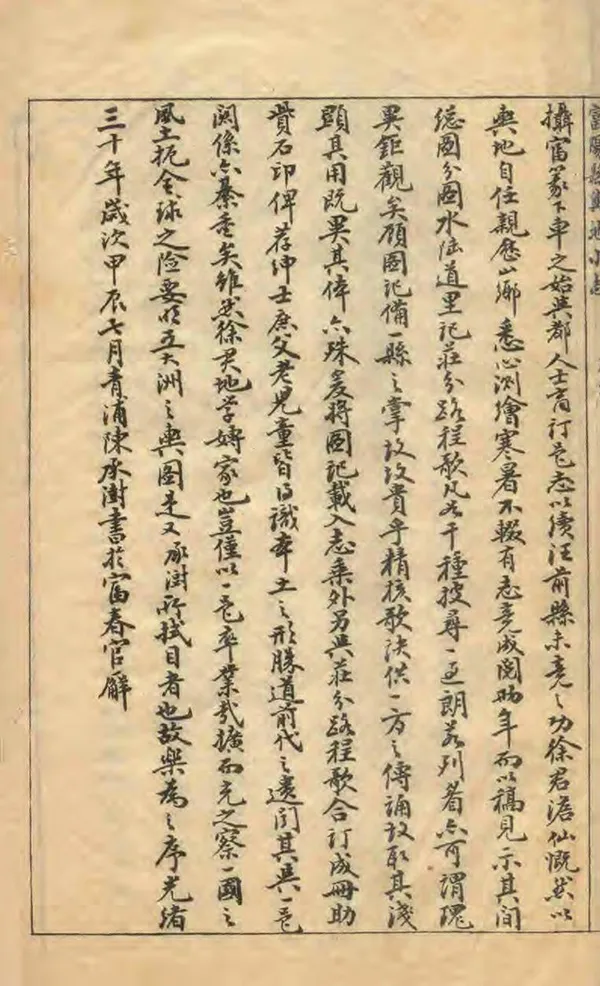 富陽縣輿地小志
攝富篆下車之始與都人士商訂邑志以續汪前縣未竟之功徐君澹仙慨然以
輿地自任親歷山鄉悉心測繪寒暑不輟有志竟成閱兩年而以稿見示其間
總圖分圖水陆道里記莊分路程歌凡若干種披尋一過朗若列眉亦可謂瑰
異鉅觀矣顧圖記備一縣之掌故故貴乎精核歌訣供一方之傳誦故取其淺
顯其用既異其体亦殊爰將圖記載入志乘外另与莊分路程歌合訂成冊助
貲石印俾薦紳士庶父老兒童皆得識本土之形勝道前代之遺聞其與一邑
関係亦綦重矣雖然徐君地学専家也豈僅以一邑卒業哉擴而充之察一國之
風土扼全球之险要明五大洲之輿圖是又承澍所拭目者也故樂為之序光緒
三十年歲次甲辰七月青浦陳承澍書於富春官廨